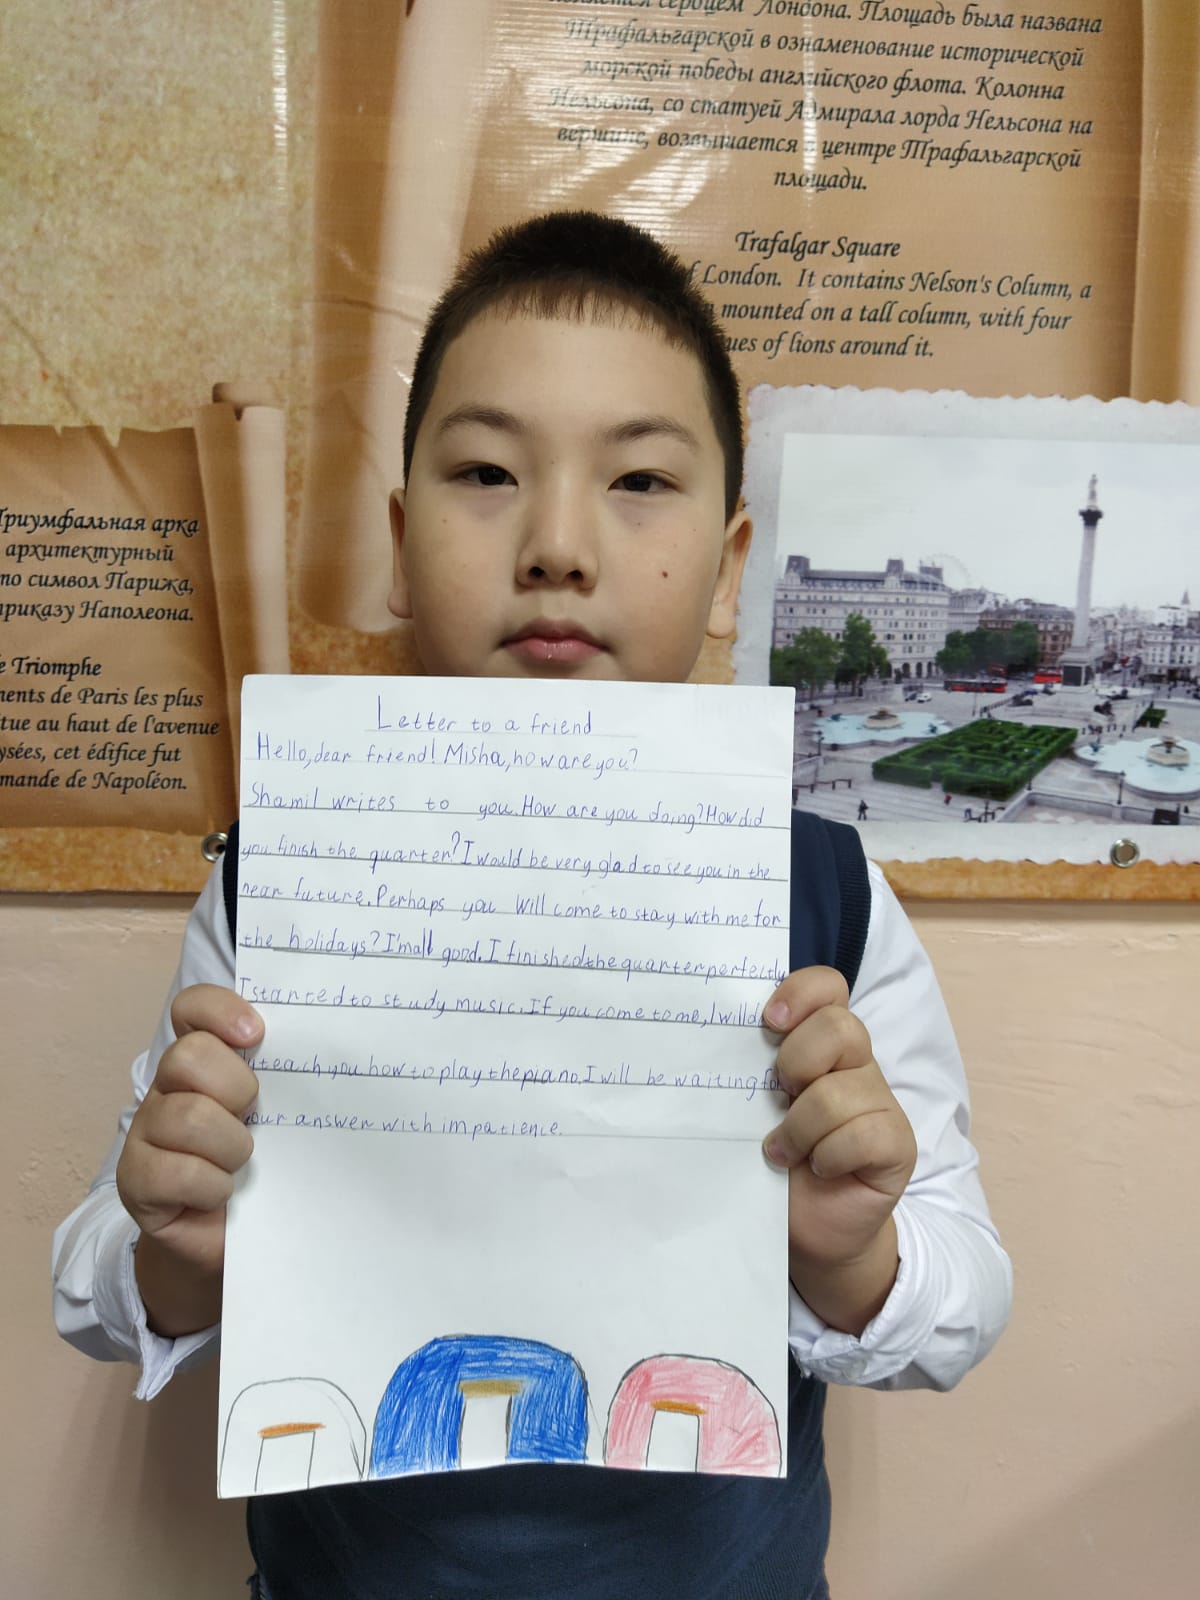 сердцем Лондона. Площадь была названа
Трафальгарской в ознаменование исторической
морской победы английского флота. Колонна
Нельсона, со статуей Адмирала лорда Нельсона на
вершине, возвышается в центре Трафальгарской
площади.
Trafalgar Square
f London. It contains Nelson's Column, a
mounted on a tall column, with four
ues of lions around it.
Триумфальная арка
архитектурный
то символ Парижа,
приказу Наполеона.
e Triomphe
ments de Paris les plus
tue au haut de l'avenue
ysées, cet édifice fut
mande de Napoléon.
Letter to a friend
Hello, dear friend! Misha, how are you?
Shamil writes to you. How are you doing? How did
you finish the quarter? I would be very glad to see you in the
near future. Perhaps you will come to stay with me for
the holidays? I'm all good. I finished the quarter perfectly
I started to study music. If you come to me, I will
teach you how to play the piano. I will be waiting for
your answer with impatience.